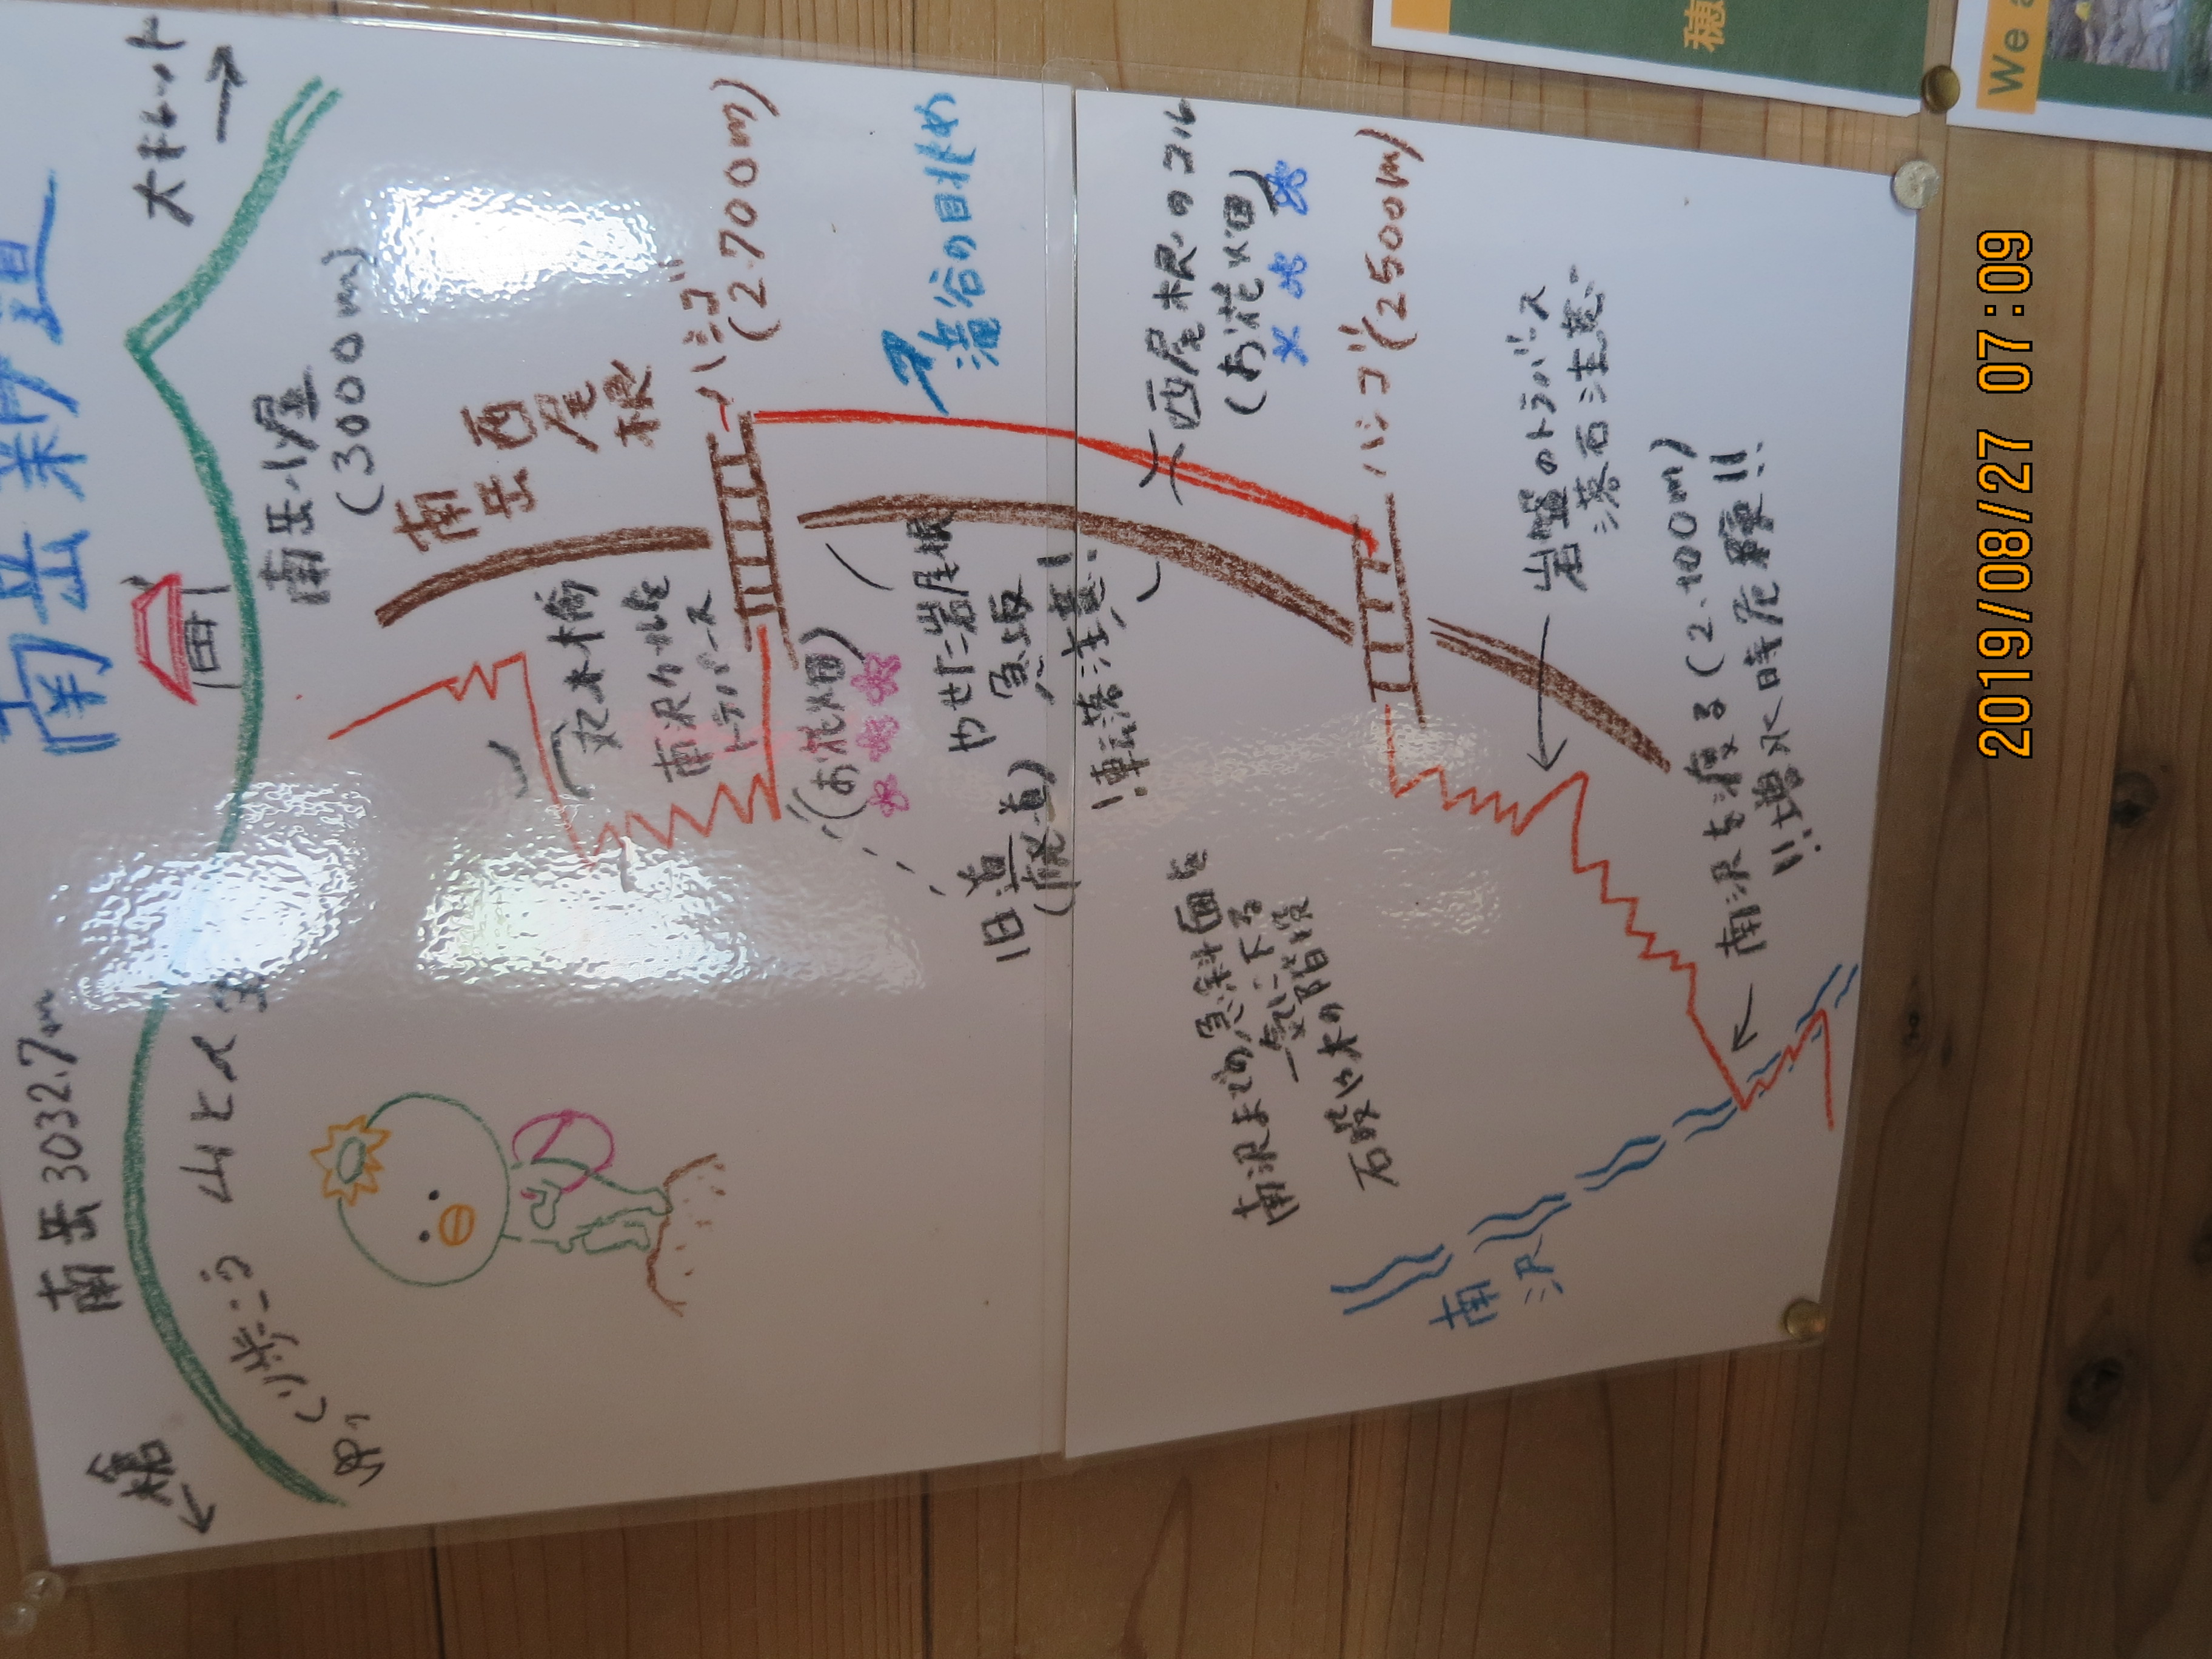 南岳新道
大キレット
南岳小屋
(3000m)
南岳3032.7m
槍
ゆっくり歩こう
南岳
西尾
根
ハシゴ
(2.700m)
木橋
南沢カールを
トラバース
(お花畑)
滝谷の目花め
やせた岩尾根
急坂
!転落注意!
旧道
(廃道)
西尾根のコル
(お花畑)
ハシゴ(2500m)
岩壁のトラバース
落石注意
南沢までの急斜面を
一気に下る
石段や木の階段
南沢を渡る(2.100m)
!!増水時危険!!
南
沢
穂
We a
2019/08/27 07:09